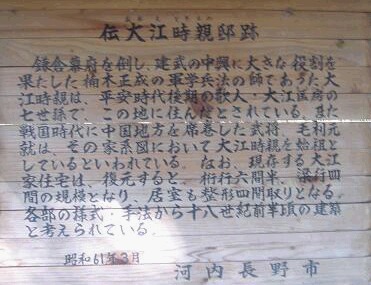 伝大江時親邸跡
鎌倉幕府を倒し、建武の中興に大きな役割を
果たした楠木正成の軍学兵法の師であった大
江時親は、平安時代後期の歌人・大江匡房の
七世孫で、この地に住んだとされている。また
戦国時代に中国地方を席巻した武将、毛利元
就は、その家系図において大江時親を始祖と
しているといわれている。なお、現存する大江
家住宅は、復元すると、桁行六間半、梁行四
間の規模となり、居室も整形四間取りとなる。
各部の様式・手法から十八世紀前半頃の建築
と考えられている。
昭和61年3月
河内長野市